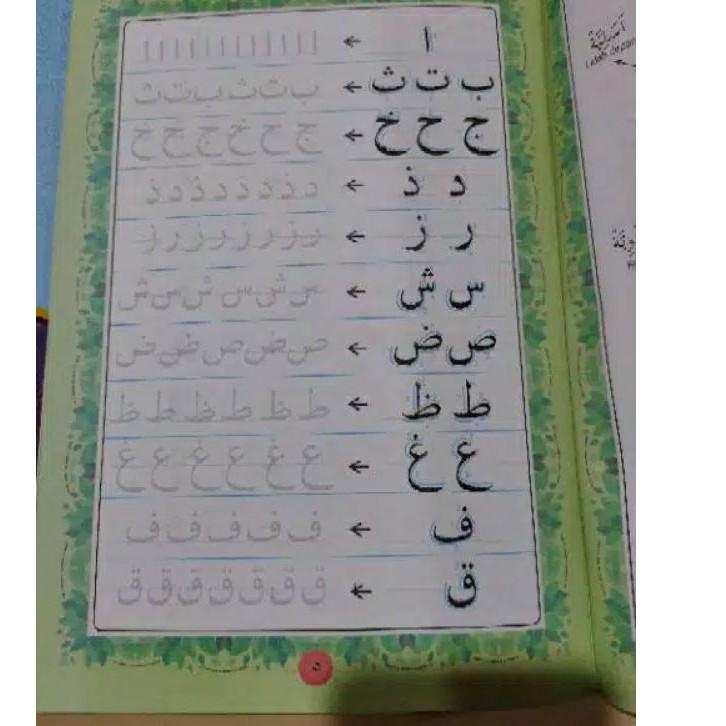 ا ← ا ا ا ا ا ا ا ا ا ا ا ا
ب ت ث ← ب ت ث ب ت ث
ج ح خ ← ج ح خ ج ح خ
د ذ ← د ذ د ذ د ذ د ذ
ر ز ← ر ز ر ز ر ز ر ز
س ش ← س ش س ش س ش
ص ض ← ص ض ص ض ض
ط ظ ← ط ظ ط ظ ط ظ
ع غ ← ع غ ع غ ع غ
ف ← ف ف ف ف ف
ق ← ق ق ق ق ق ق ق
٥